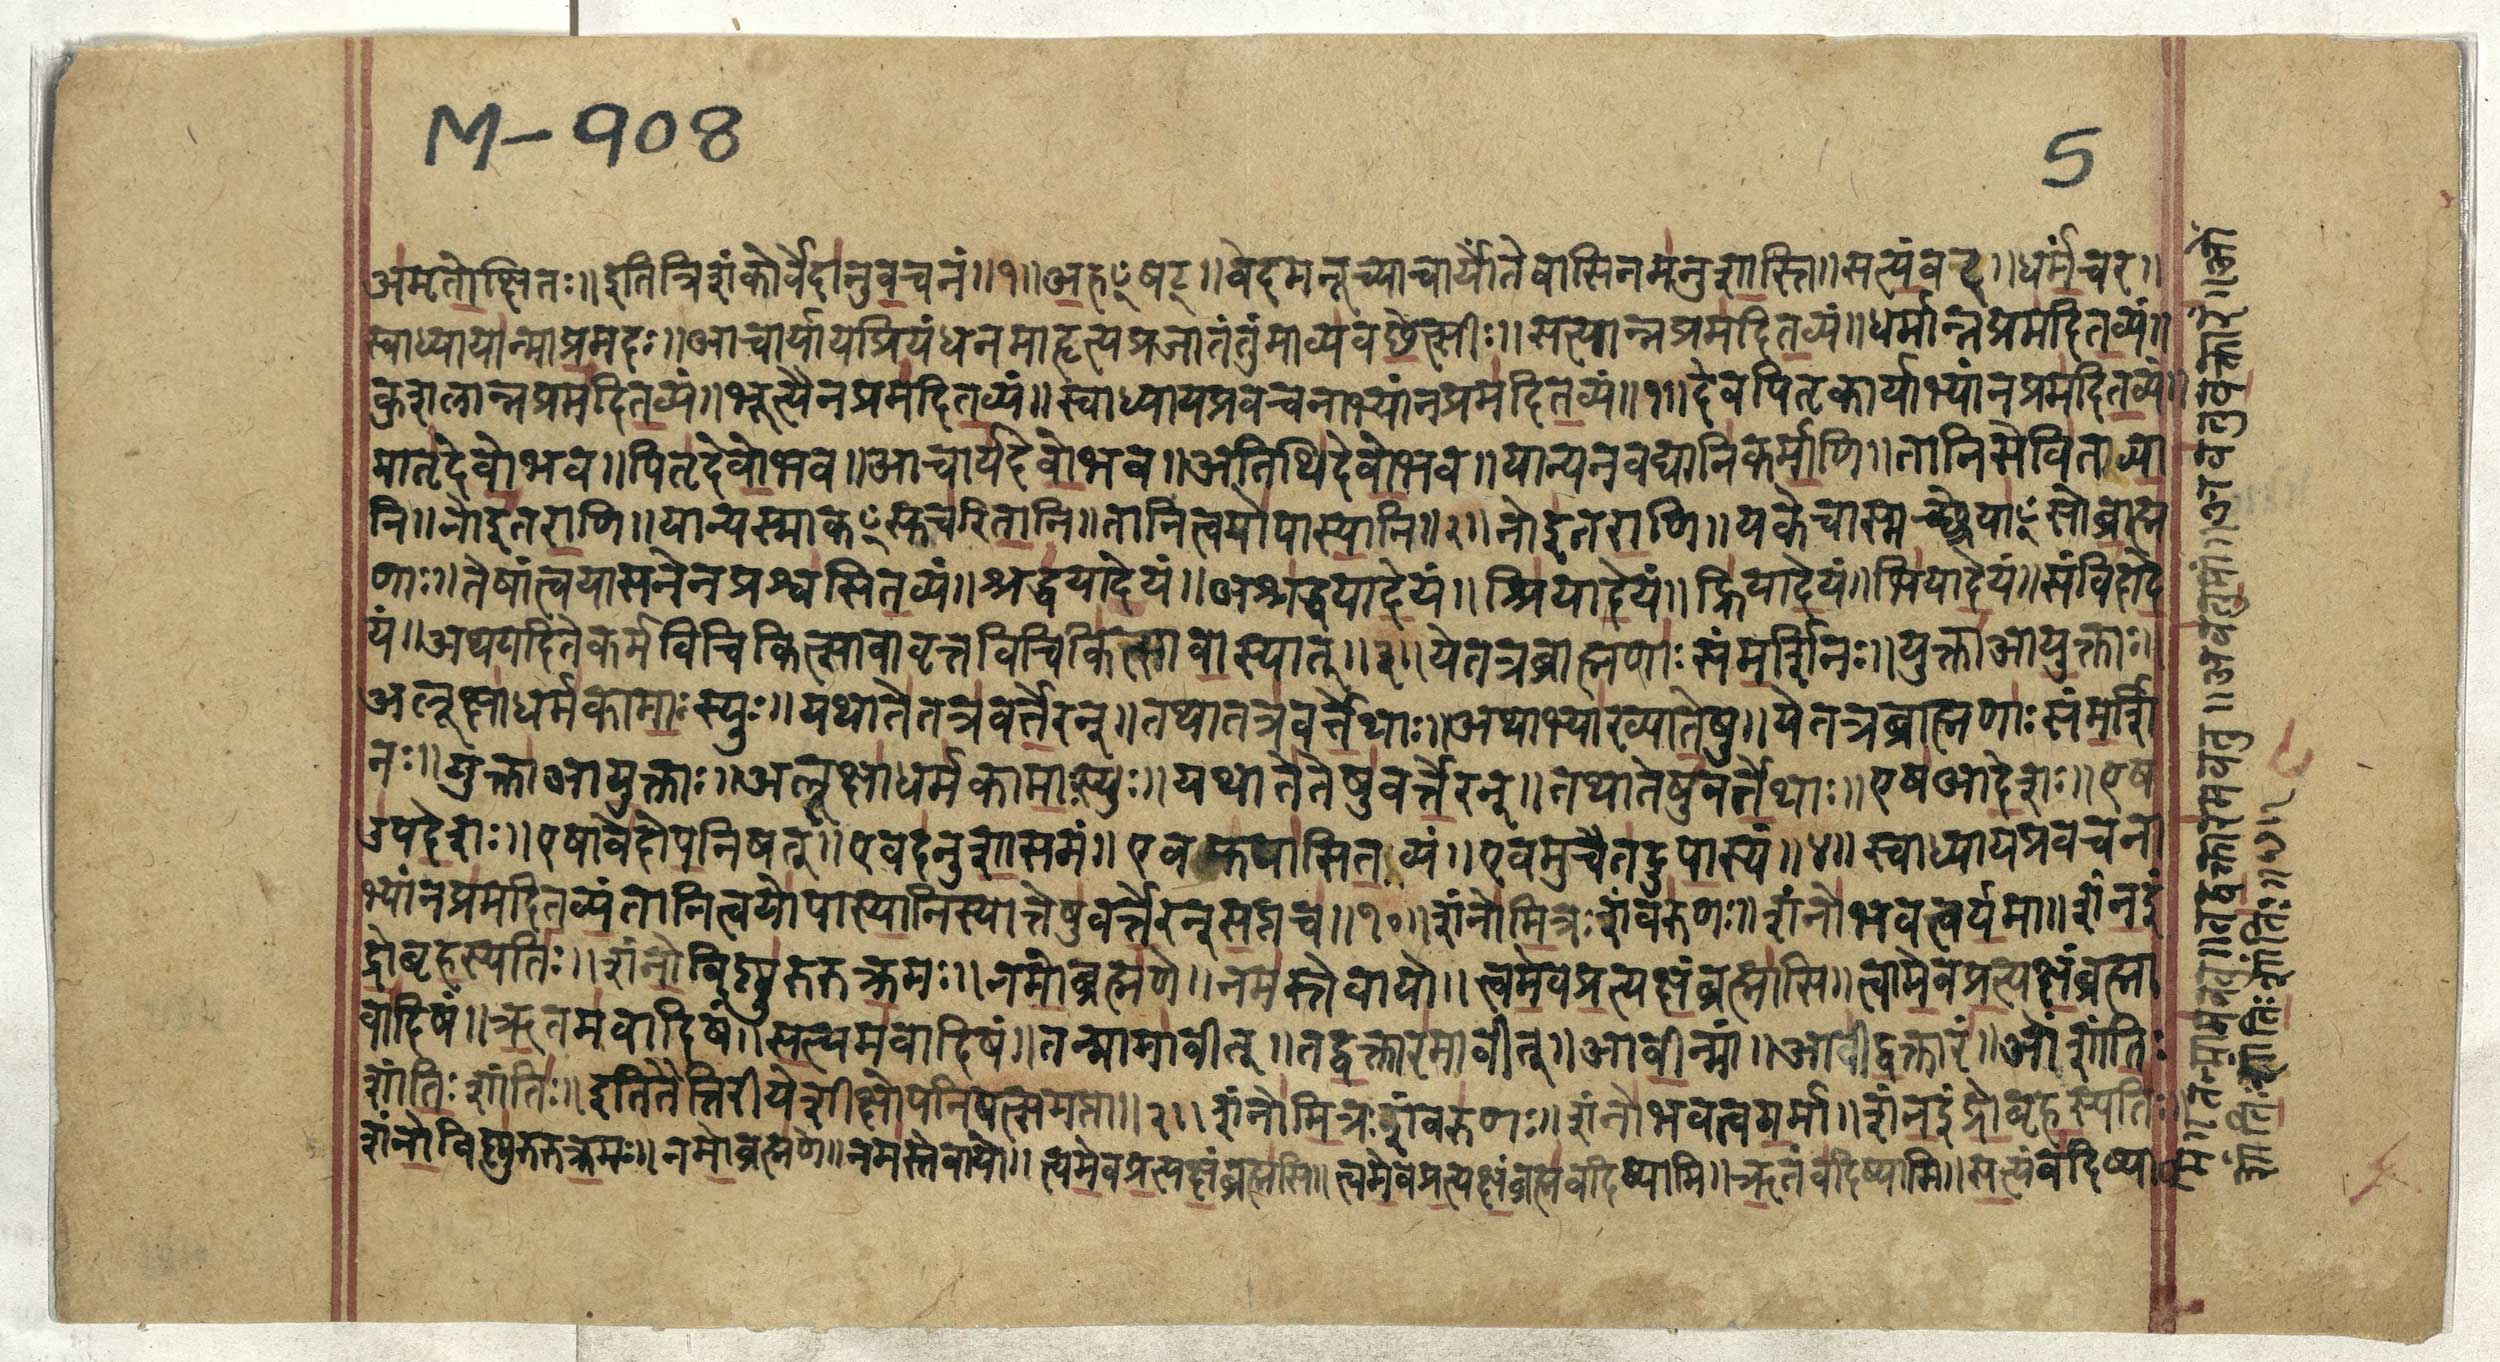 M-908
5
अमृतोक्षितः॥इतित्रिशंकोर्वेदानुवचनं॥१॥अहꣳषट्॥वेदमनूच्याचार्योंतेवासिनमनुशास्ति॥सत्यंवद॥धर्मंचर॥
स्वाध्यायान्माप्रमदः॥आचार्यायप्रियंधनमाहृत्यप्रजातंतुंमाव्यवछेत्सीः॥सत्यान्नप्रमदितव्यं॥धर्मान्नप्रमदितव्यं॥
कुशलान्नप्रमदितव्यं॥भूत्यैनप्रमदितव्यं॥स्वाध्यायप्रवचनाभ्यांनप्रमदितव्यं॥१॥देवपितृकार्याभ्यांनप्रमदितव्यं॥
मातृदेवोभव॥पितृदेवोभव॥आचार्यदेवोभव॥अतिथिदेवोभव॥यान्यनवद्यानिकर्माणि॥तानिसेवितव्या
नि॥नोइतराणि॥यान्यस्माकꣳसुचरितानि॥तानित्वयोपास्यानि॥२॥नोइतराणि॥येकेचास्मच्छ्रेयाꣳसोब्राह्म
णाः॥तेषांत्वयासनेनप्रश्वसितव्यं॥श्रद्धयादेयं॥अश्रद्धयादेयं॥श्रियादेयं॥ह्रियादेयं॥भियादेयं॥संविदादे
यं॥अथयदितेकर्मविचिकित्सावावृत्तविचिकित्सावास्यात्॥३॥येतत्रब्राह्मणाःसंमर्शिनः॥युक्ताआयुक्ताः॥
अलूक्षाधर्मकामाःस्युः॥यथातेतत्रवर्त्तेरन्॥तथातत्रवर्त्तेथाः॥अथाभ्याख्यातेषु॥येतत्रब्राह्मणाःसंमर्शि
नः॥युक्ताआयुक्ताः॥अलूक्षाधर्मकामाःस्युः॥यथातेतेषुवर्त्तेरन्॥तथातेषुवर्त्तेथाः॥एषआदेशः॥एष
उपदेशः॥एषावेदोपनिषत्॥एतदनुशासनं॥एवमुपासितव्यं॥एवमुचैतदुपास्यं॥४॥स्वाध्यायप्रवचना
भ्यांनप्रमदितव्यंतानित्वयोपास्यानिस्यात्तेषुवर्त्तेरन्सप्तच॥१०॥शंनोमित्रःशंवरुणः॥शंनोभवत्वर्यमा॥शंनइं
द्रोबृहस्पतिः॥शंनोविष्णुरुरुक्रमः॥नमोब्रह्मणे॥नमस्तेवायो॥त्वमेवप्रत्यक्षंब्रह्मासि॥त्वामेवप्रत्यक्षंब्रह्मा
वादिषं॥ऋतमवादिषं॥सत्यमवादिषं॥तन्मामावीत्॥तद्वक्तारमावीत्॥आवीन्मां॥आवीद्वक्तारं॥ओंशांतिः
शांतिःशांतिः॥इतितैत्तिरीयेशीक्षोपनिषत्समाप्ता॥२॥शंनोमित्रःशंवरुणः॥शंनोभवत्वर्यमा॥शंनइंद्रोबृहस्पतिः॥
शंनोविष्णुरुरुक्रमः॥नमोब्रह्मणे॥नमस्तेवायो॥त्वमेवप्रत्यक्षंब्रह्मासि॥त्वमेवप्रत्यक्षंब्रह्मवदिष्यामि॥ऋतंवदिष्यामि॥सत्यंवदिष्या
मि॥तन्मामवतु॥तद्वक्तारमवतु॥अवतुमां॥अवतुवक्तारं॥ओं
शांतिःशांतिःशांतिः॥